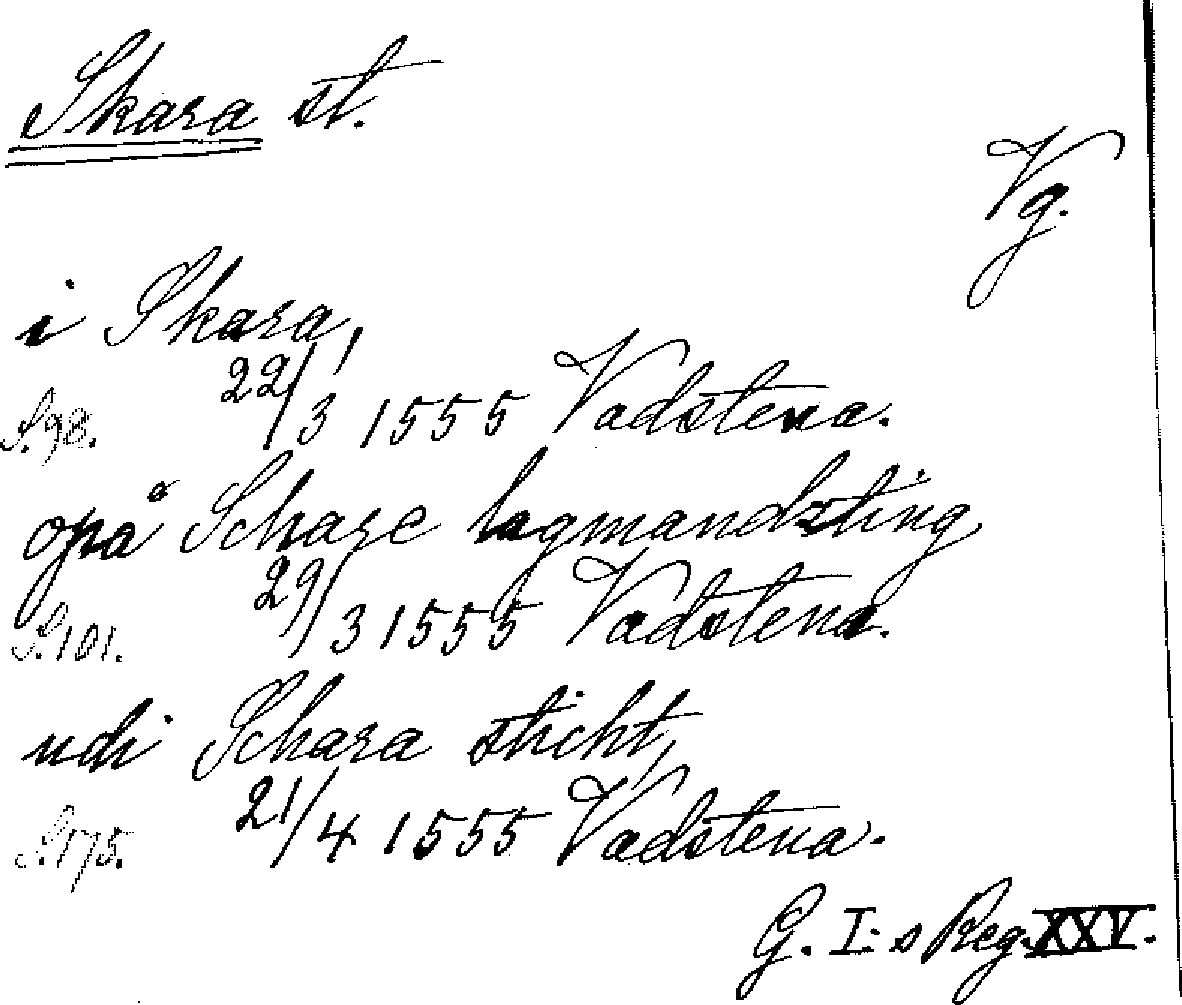 Skara st.
Vg.
i Skara,
S. 98. 22/3 1555 Vadstena.
opå Schare lagmandzting
S. 101. 29/3 1555 Vadstena.
udi Schara sticht,
S. 175. 21/4 1555 Vadstena.
G. I:s Reg. XXV.